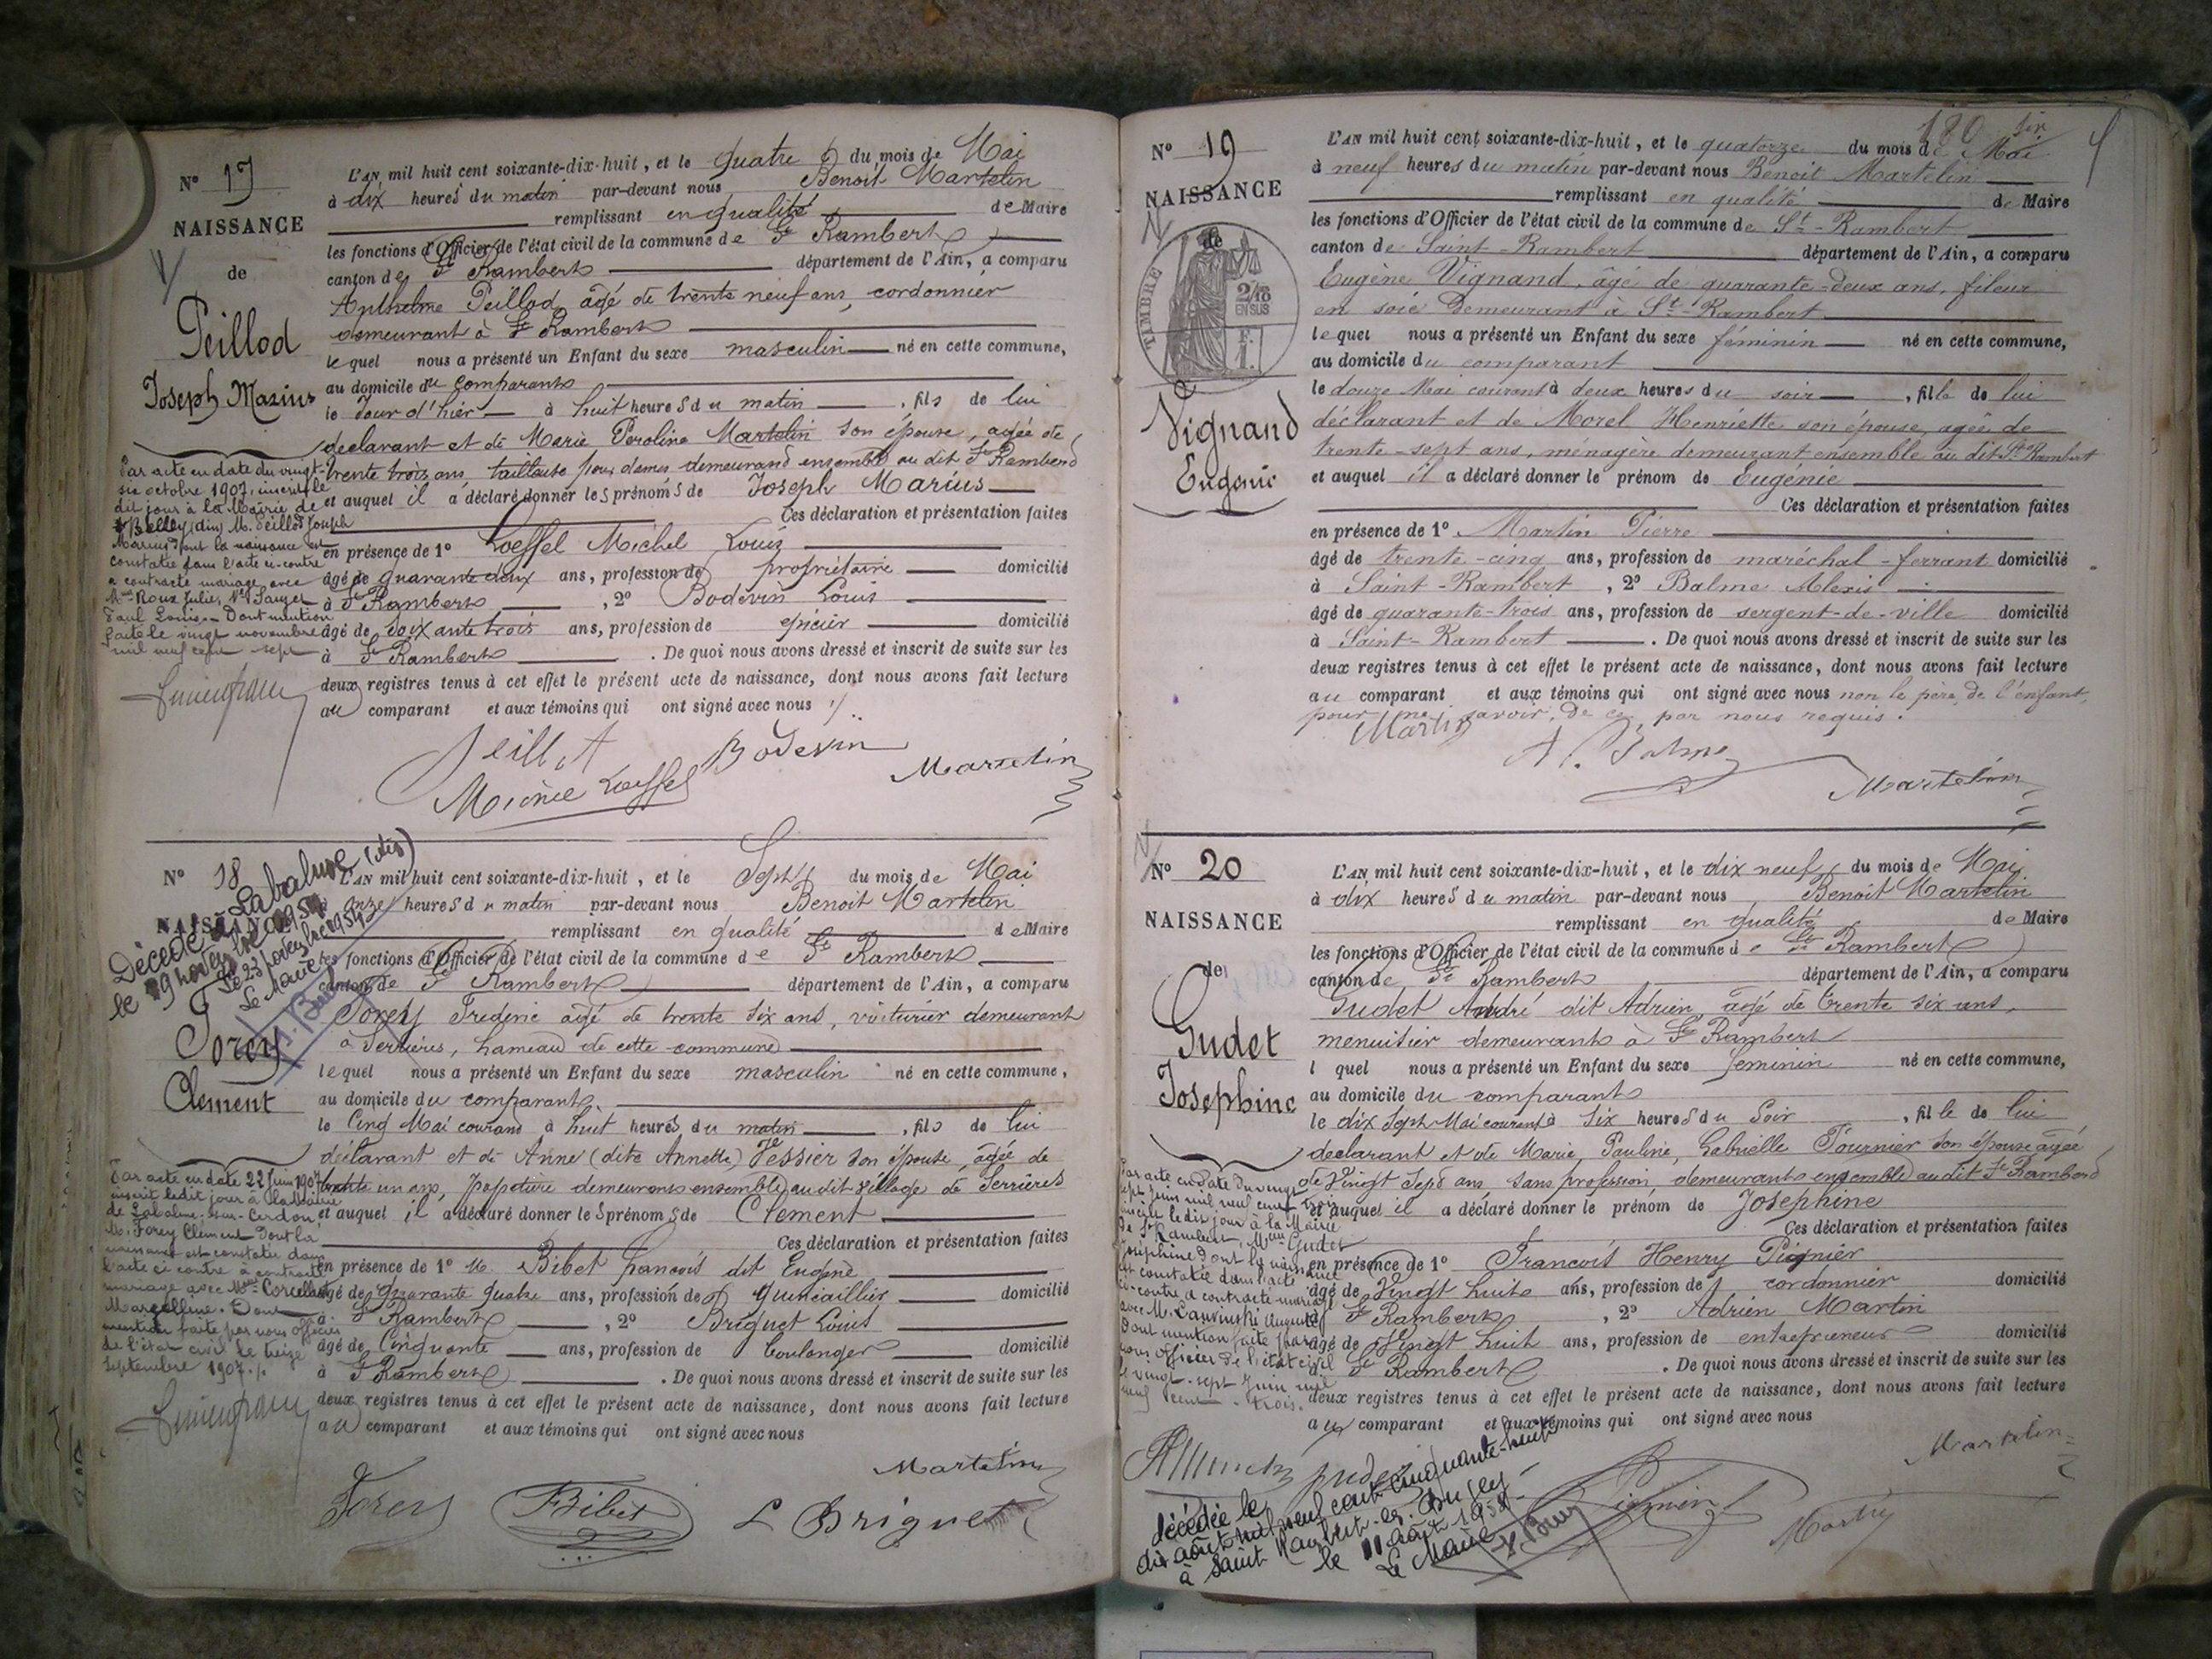 N° 17
NAISSANCE
de
Peillod
Joseph Marius
L'AN mil huit cent soixante-dix-huit, et le quatre du mois de Mai
à dix heures du matin par-devant nous Benoit Martelin
remplissant en qualité de Maire
les fonctions d'Officier de l'état civil de la commune de St Rambert
canton de St Rambert département de l'Ain, a comparu
Anthelme Peillod, agé de trente neuf ans, cordonnier
demeurant à St Rambert
lequel nous a présenté un Enfant du sexe masculin né en cette commune,
au domicile du comparant
le Jour d'hier à huit heures du matin, fils de lui
déclarant et de Marie Peroline Martelin son épouse, agée de
trente trois ans, tailleuse pour dames demeurand ensemble au dit St Rambert
et auquel il a déclaré donner les prénoms de Joseph Marius
Ces déclaration et présentation faites
en présence de 1° Loeffel Michel Louis
âgé de quarante deux ans, profession de propriétaire domicilié
à St Rambert, 2° Bodevin Louis
âgé de soixante trois ans, profession de épicier domicilié
à St Rambert. De quoi nous avons dressé et inscrit de suite sur les
deux registres tenus à cet effet le présent acte de naissance, dont nous avons fait lecture
au comparant et aux témoins qui ont signé avec nous
Par acte en date du vingt
six octobre 1907, inscrit le
dit jour à la Mairie de
Belley (Ain) M. Peillod Joseph
Marius dont la naissance est
constatée dans l'acte ci-contre
a contracté mariage avec
Roux Julie, Vve Sauzet
Paul Louis. Dont mention
faite le vingt novembre
mil neuf cent sept
Peillod
Bodevin
Martelin
Michel Loeffel
N° 18
NAISSANCE
Décédé à Labalme (Ain)
le 19 novembre 1954
Le 23 novembre 1954
Le Maire
Forey
Clement
L'AN mil huit cent soixante-dix-huit, et le Sept du mois de Mai
à onze heures du matin par-devant nous Benoit Martelin
remplissant en qualité de Maire
les fonctions d'Officier de l'état civil de la commune de St Rambert
canton de St Rambert département de l'Ain, a comparu
Forey Frederic agé de trente six ans, voiturier demeurant
à Serrières, hameau de cette commune
lequel nous a présenté un Enfant du sexe masculin né en cette commune,
au domicile du comparant
le Cinq Mai courant à huit heures du matin, fils de lui
déclarant et de Anne (dite Annette) Tessier son épouse, agée de
trente un ans, demeurant ensemble au dit village de Serrières
et auquel il a déclaré donner les prénoms de Clement
Ces déclaration et présentation faites
en présence de 1° M. Bibet François dit Eugène
âgé de quarante quatre ans, profession de quincaillier domicilié
à St Rambert, 2° Briquet Louis
âgé de Cinquante ans, profession de boulanger domicilié
à St Rambert. De quoi nous avons dressé et inscrit de suite sur les
deux registres tenus à cet effet le présent acte de naissance, dont nous avons fait lecture
au comparant et aux témoins qui ont signé avec nous
Par acte en date 22 Juin 1907
inscrit ledit jour à la Mairie
de Labalme-sur-Cerdon,
M. Forey Clément dont la
naissance est constatée dans
l'acte ci contre à contracté
mariage avec
Dont
mention faite par nous officier
de l'état civil le treize
septembre 1907
Martelin
Forey
Bibet
L Briquet
180
N° 19
NAISSANCE
de
TIMBRE
2/10
EN SUS
Vignand
Eugénie
L'AN mil huit cent soixante-dix-huit, et le quatorze du mois de Mai
à neuf heures du matin par-devant nous Benoit Martelin
remplissant en qualité de Maire
les fonctions d'Officier de l'état civil de la commune de St-Rambert
canton de Saint-Rambert département de l'Ain, a comparu
Eugène Vignand, âgé de quarante-deux ans, fileur
en soie demeurant à St-Rambert
lequel nous a présenté un Enfant du sexe féminin né en cette commune,
au domicile du comparant
le douze Mai courant à deux heures du soir, fille de lui
déclarant et de Morel Henriette son épouse, agée de
trente-sept ans, ménagère demeurant ensemble au dit St-Rambert
et auquel il a déclaré donner le prénom de Eugénie
Ces déclaration et présentation faites
en présence de 1° Martin Pierre
âgé de trente-cinq ans, profession de maréchal-ferrant domicilié
à Saint-Rambert, 2° Balme Alexis
âgé de quarante-trois ans, profession de sergent-de-ville domicilié
à Saint-Rambert. De quoi nous avons dressé et inscrit de suite sur les
deux registres tenus à cet effet le présent acte de naissance, dont nous avons fait lecture
au comparant et aux témoins qui ont signé avec nous non le père de l'enfant,
pour ne savoir, de ce par nous requis.
Martin
A. Balme
Martelin
N° 20
NAISSANCE
de
Gudet
Josephine
L'AN mil huit cent soixante-dix-huit, et le dix neuf du mois de Mai
à dix heures du matin par-devant nous Benoit Martelin
remplissant en qualité de Maire
les fonctions d'Officier de l'état civil de la commune de St Rambert
canton de St Rambert département de l'Ain, a comparu
Gudet André dit Adrien, agé de trente six ans,
menuisier demeurant à St Rambert
l quel nous a présenté un Enfant du sexe feminin né en cette commune,
au domicile du comparant
le dix sept Mai courant à six heures du soir, fille de lui
declarant et de Marie, Pauline, Gabrielle Fournier son épouse agée
de Vingt Sept ans sans profession, demeurant ensemble au dit St Rambert
et auquel il a déclaré donner le prénom de Josephine
Ces déclaration et présentation faites
en présence de 1° François Henry Pignier
âgé de Vingt huit ans, profession de cordonnier domicilié
à St Rambert, 2° Adrien Martin
âgé de Vingt huit ans, profession de entrepreneur domicilié
à St Rambert. De quoi nous avons dressé et inscrit de suite sur les
deux registres tenus à cet effet le présent acte de naissance, dont nous avons fait lecture
au comparant et aux témoins qui ont signé avec nous
Par acte en date du vingt
sept juin mil neuf cent trois
inscrit le dit jour à la Mairie
de St Rambert, Gudet
Joséphine dont la naissance
est constatée dans l'acte
ci-contre a contracté mariage
avec M.
Dont mention faite par
nous officier de l'état civil
le vingt-sept Juin mil
neuf cent trois.
Martelin
Pignier
Martin
décédée le
dix août mil neuf cent cinquante-huit
à Saint Rambert-en-Bugey
le 11 août 1958
Le Maire